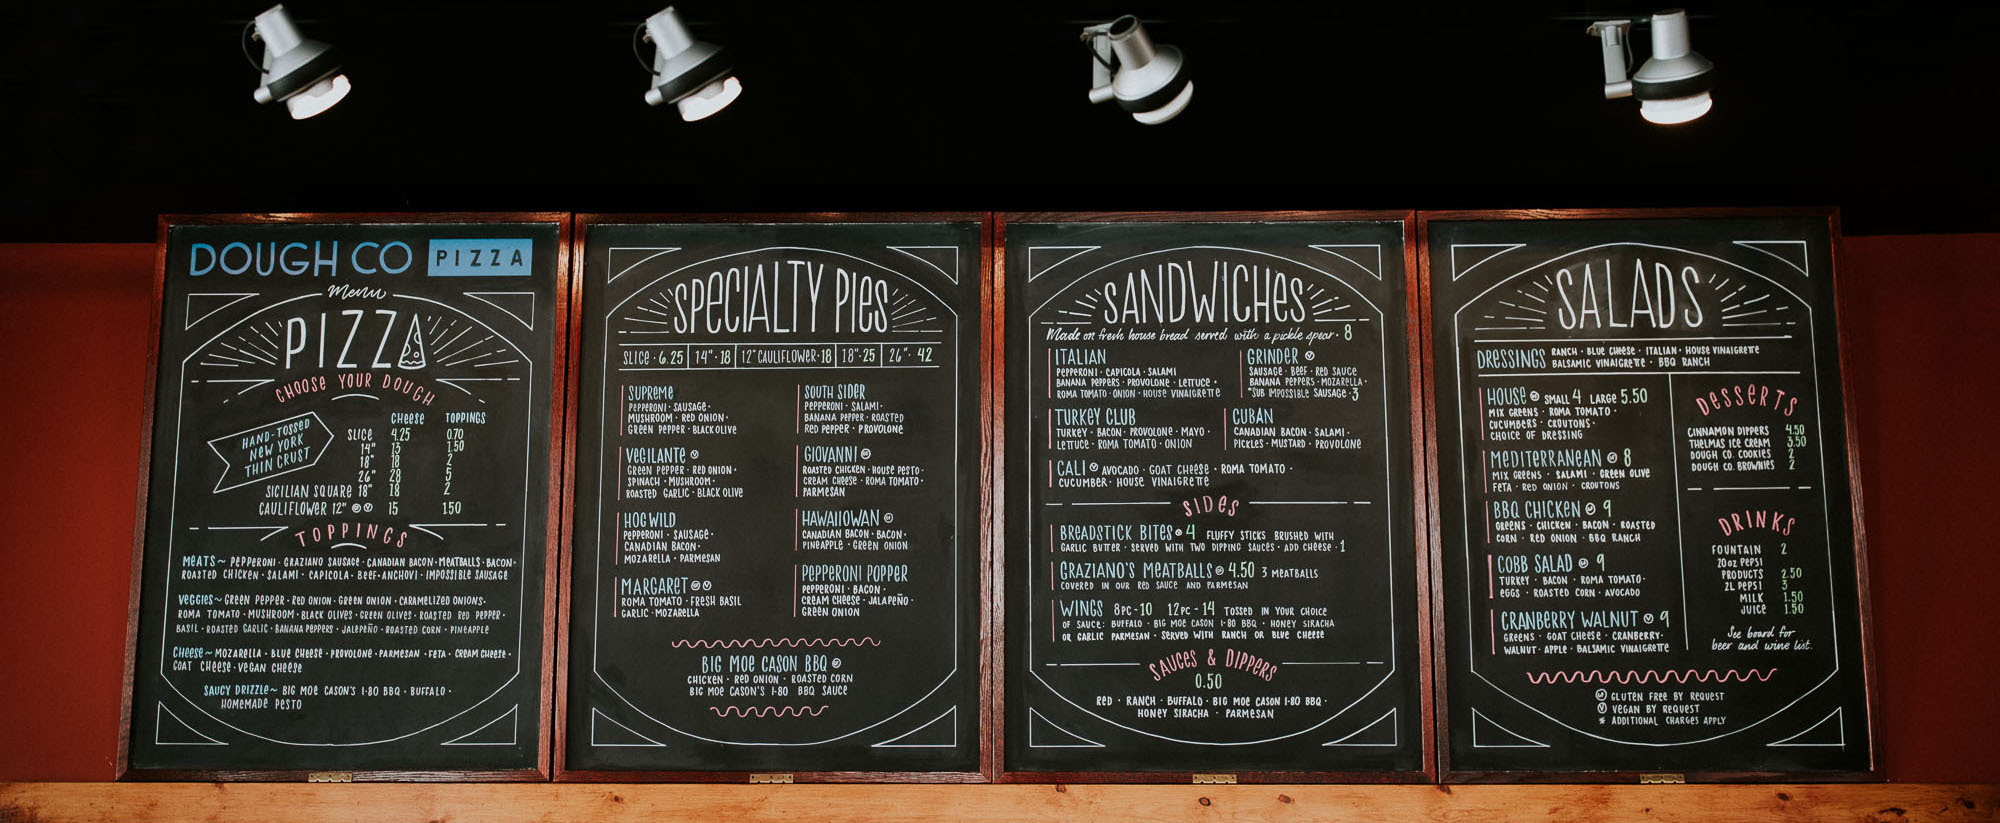 DOUGH CO PIZZA
Menu
PIZZA
CHOOSE YOUR DOUGH
HAND-TOSSED
NEW YORK
THIN CRUST
CHEESE TOPPINGS
SLICE 4.25 0.70
14" 13 1.50
18" 18 2
26" 28 5
SICILIAN SQUARE 18" 18 2
CAULIFLOWER 12" GF V 15 1.50
TOPPINGS
MEATS~ PEPPERONI · GRAZIANO SAUSAGE · CANADIAN BACON · MEATBALLS · BACON ·
ROASTED CHICKEN · SALAMI · CAPICOLA · BEEF · ANCHOVI · IMPOSSIBLE SAUSAGE
VEGGIES~ GREEN PEPPER · RED ONION · GREEN ONION · CARAMELIZED ONIONS ·
ROMA TOMATO · MUSHROOM · BLACK OLIVES · GREEN OLIVES · ROASTED RED PEPPER ·
BASIL · ROASTED GARLIC · BANANA PEPPERS · JALEPEÑO · ROASTED CORN · PINEAPPLE
CHEESE~ MOZARELLA · BLUE CHEESE · PROVOLONE · PARMESAN · FETA · CREAM CHEESE ·
GOAT CHEESE · VEGAN CHEESE
SAUCY DRIZZLE~ BIG MOE CASON'S 1-80 BBQ · BUFFALO ·
HOMEMADE PESTO
SPECIALTY PIES
SLICE · 6.25 14" · 18 12" CAULIFLOWER · 18 18" · 25 26" · 42
SUPREME
PEPPERONI · SAUSAGE ·
MUSHROOM · RED ONION ·
GREEN PEPPER · BLACK OLIVE
VEGILANTE V
GREEN PEPPER · RED ONION ·
SPINACH · MUSHROOM ·
ROASTED GARLIC · BLACK OLIVE
HOG WILD
PEPPERONI · SAUSAGE ·
CANADIAN BACON ·
MOZARELLA · PARMESAN
MARGARET GF V
ROMA TOMATO · FRESH BASIL
GARLIC · MOZARELLA
SOUTH SIDER
PEPPERONI · SALAMI ·
BANANA PEPPER · ROASTED
RED PEPPER · PROVOLONE
GIOVANNI GF
ROASTED CHICKEN · HOUSE PESTO ·
CREAM CHEESE · ROMA TOMATO ·
PARMESAN
HAWAIIOWAN GF
CANADIAN BACON · BACON ·
PINEAPPLE · GREEN ONION
PEPPERONI POPPER
PEPPERONI · BACON ·
CREAM CHEESE · JALAPEÑO ·
GREEN ONION
BIG MOE CASON BBQ GF
CHICKEN · RED ONION · ROASTED CORN
BIG MOE CASON'S 1-80 BBQ SAUCE
SANDWICHES
Made on fresh house bread served with a pickle spear · 8
ITALIAN
PEPPERONI · CAPICOLA · SALAMI
BANANA PEPPERS · PROVOLONE · LETTUCE ·
ROMA TOMATO · ONION · HOUSE VINAIGRETTE
GRINDER V
SAUSAGE · BEEF · RED SAUCE
BANANA PEPPERS · MOZARELLA ·
*SUB IMPOSSIBLE SAUSAGE · 3
TURKEY CLUB
TURKEY · BACON · PROVOLONE · MAYO ·
LETTUCE · ROMA TOMATO · ONION
CUBAN
CANADIAN BACON · SALAMI ·
PICKLES · MUSTARD · PROVOLONE
CALI V AVOCADO · GOAT CHEESE · ROMA TOMATO ·
CUCUMBER · HOUSE VINAIGRETTE
SIDES
BREADSTICK BITES 4 FLUFFY STICKS BRUSHED WITH
GARLIC BUTTER · SERVED WITH TWO DIPPING SAUCES · ADD CHEESE · 1
GRAZIANO'S MEATBALLS GF 4.50 3 MEATBALLS
COVERED IN OUR RED SAUCE AND PARMESAN
WINGS 8PC - 10 12PC - 14 TOSSED IN YOUR CHOICE
OF SAUCE: BUFFALO · BIG MOE CASON 1-80 BBQ · HONEY SIRACHA
OR GARLIC PARMESAN · SERVED WITH RANCH OR BLUE CHEESE
SAUCES & DIPPERS
0.50
RED · RANCH · BUFFALO · BIG MOE CASON 1-80 BBQ ·
HONEY SIRACHA · PARMESAN
SALADS
DRESSINGS RANCH · BLUE CHEESE · ITALIAN · HOUSE VINAIGRETTE
BALSAMIC VINAIGRETTE · BBQ RANCH
HOUSE GF SMALL 4 LARGE 5.50
MIX GREENS · ROMA TOMATO ·
CUCUMBERS · CROUTONS ·
CHOICE OF DRESSING
MEDITERRANEAN GF 8
MIX GREENS · SALAMI · GREEN OLIVE
FETA · RED ONION · CROUTONS
BBQ CHICKEN GF 9
GREENS · CHICKEN · BACON · ROASTED
CORN · RED ONION · BBQ RANCH
COBB SALAD GF 9
TURKEY · BACON · ROMA TOMATO ·
EGGS · ROASTED CORN · AVOCADO
CRANBERRY WALNUT V GF 9
GREENS · GOAT CHEESE · CRANBERRY ·
WALNUT · APPLE · BALSAMIC VINAIGRETTE
DESSERTS
CINNAMON DIPPERS 4.50
THELMAS ICE CREAM 3.50
DOUGH CO. COOKIES 2
DOUGH CO. BROWNIES 2
DRINKS
FOUNTAIN 2
20 OZ PEPSI
PRODUCTS 2.50
2L PEPSI 3
MILK 1.50
JUICE 1.50
See board for
beer and wine list.
GF GLUTEN FREE BY REQUEST
V VEGAN BY REQUEST
* ADDITIONAL CHARGES APPLY